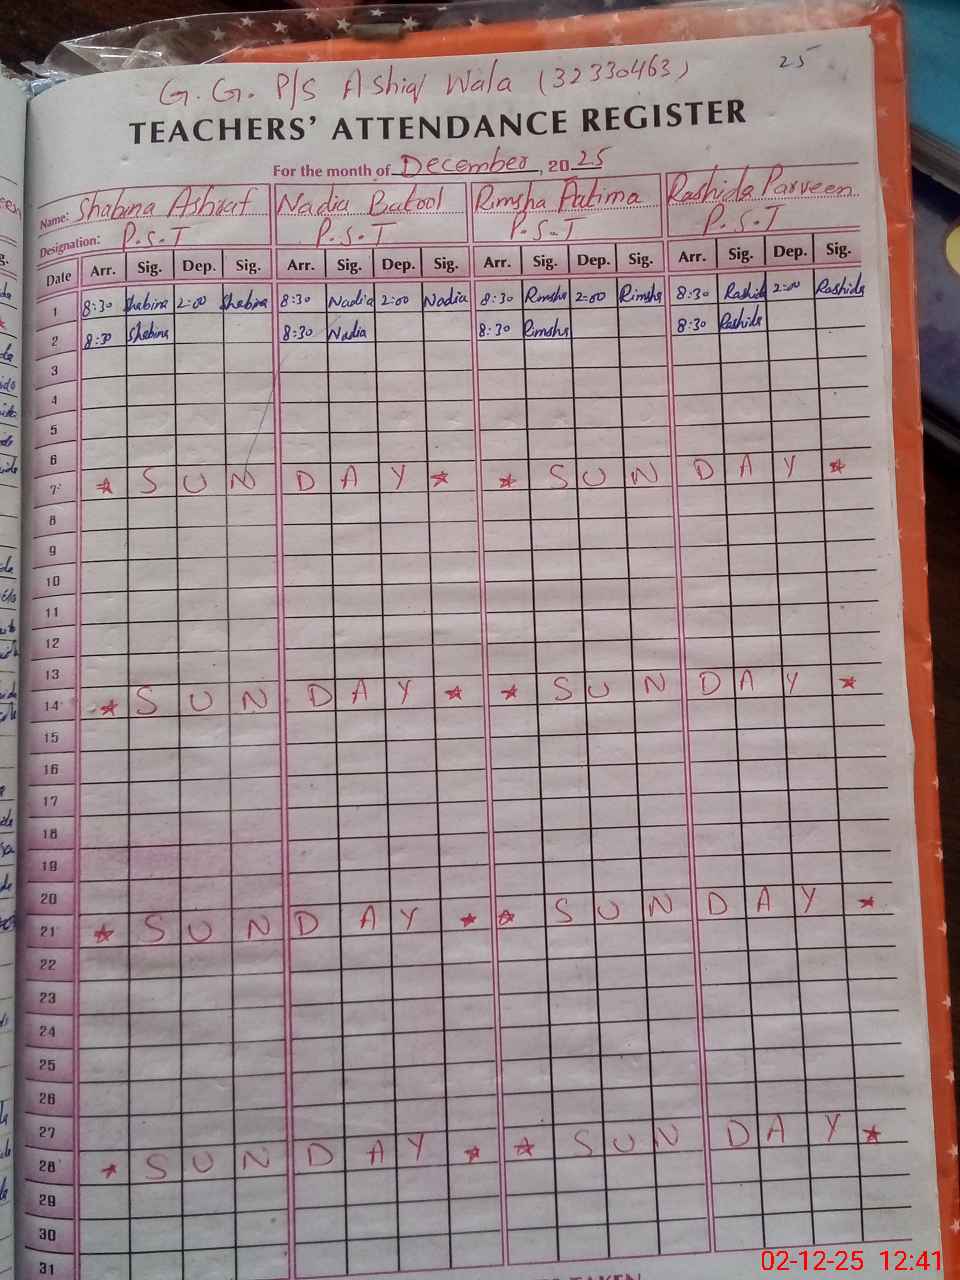 25
G.G. P/S Ashiq Wala (32330463)
TEACHERS' ATTENDANCE REGISTER
For the month of December, 2025
Name: Shabina Ashraf Nadia Batool Rimsha Fatima Rashida Parveen
Designation: P.S.T P.S.T P.S.T P.S.T
Date Arr. Sig. Dep. Sig. Arr. Sig. Dep. Sig. Arr. Sig. Dep. Sig. Arr. Sig. Dep. Sig.
1 8:30 Shabina 2:00 Shabina 8:30 Nadia 2:00 Nadia 8:30 Rimsha 2:00 Rimsha 8:30 Rashida 2:00 Rashida
2 8:30 Shabina 8:30 Nadia 8:30 Rimsha 8:30 Rashida
3
4
5
6
7 * S U N D A Y * * S U N D A Y *
8
9
10
11
12
13
14 * S U N D A Y * * S U N D A Y *
15
16
17
18
19
20
21 * S U N D A Y * * S U N D A Y *
22
23
24
25
26
27
28 * S U N D A Y * * S U N D A Y *
29
30
31
02-12-25 12:41